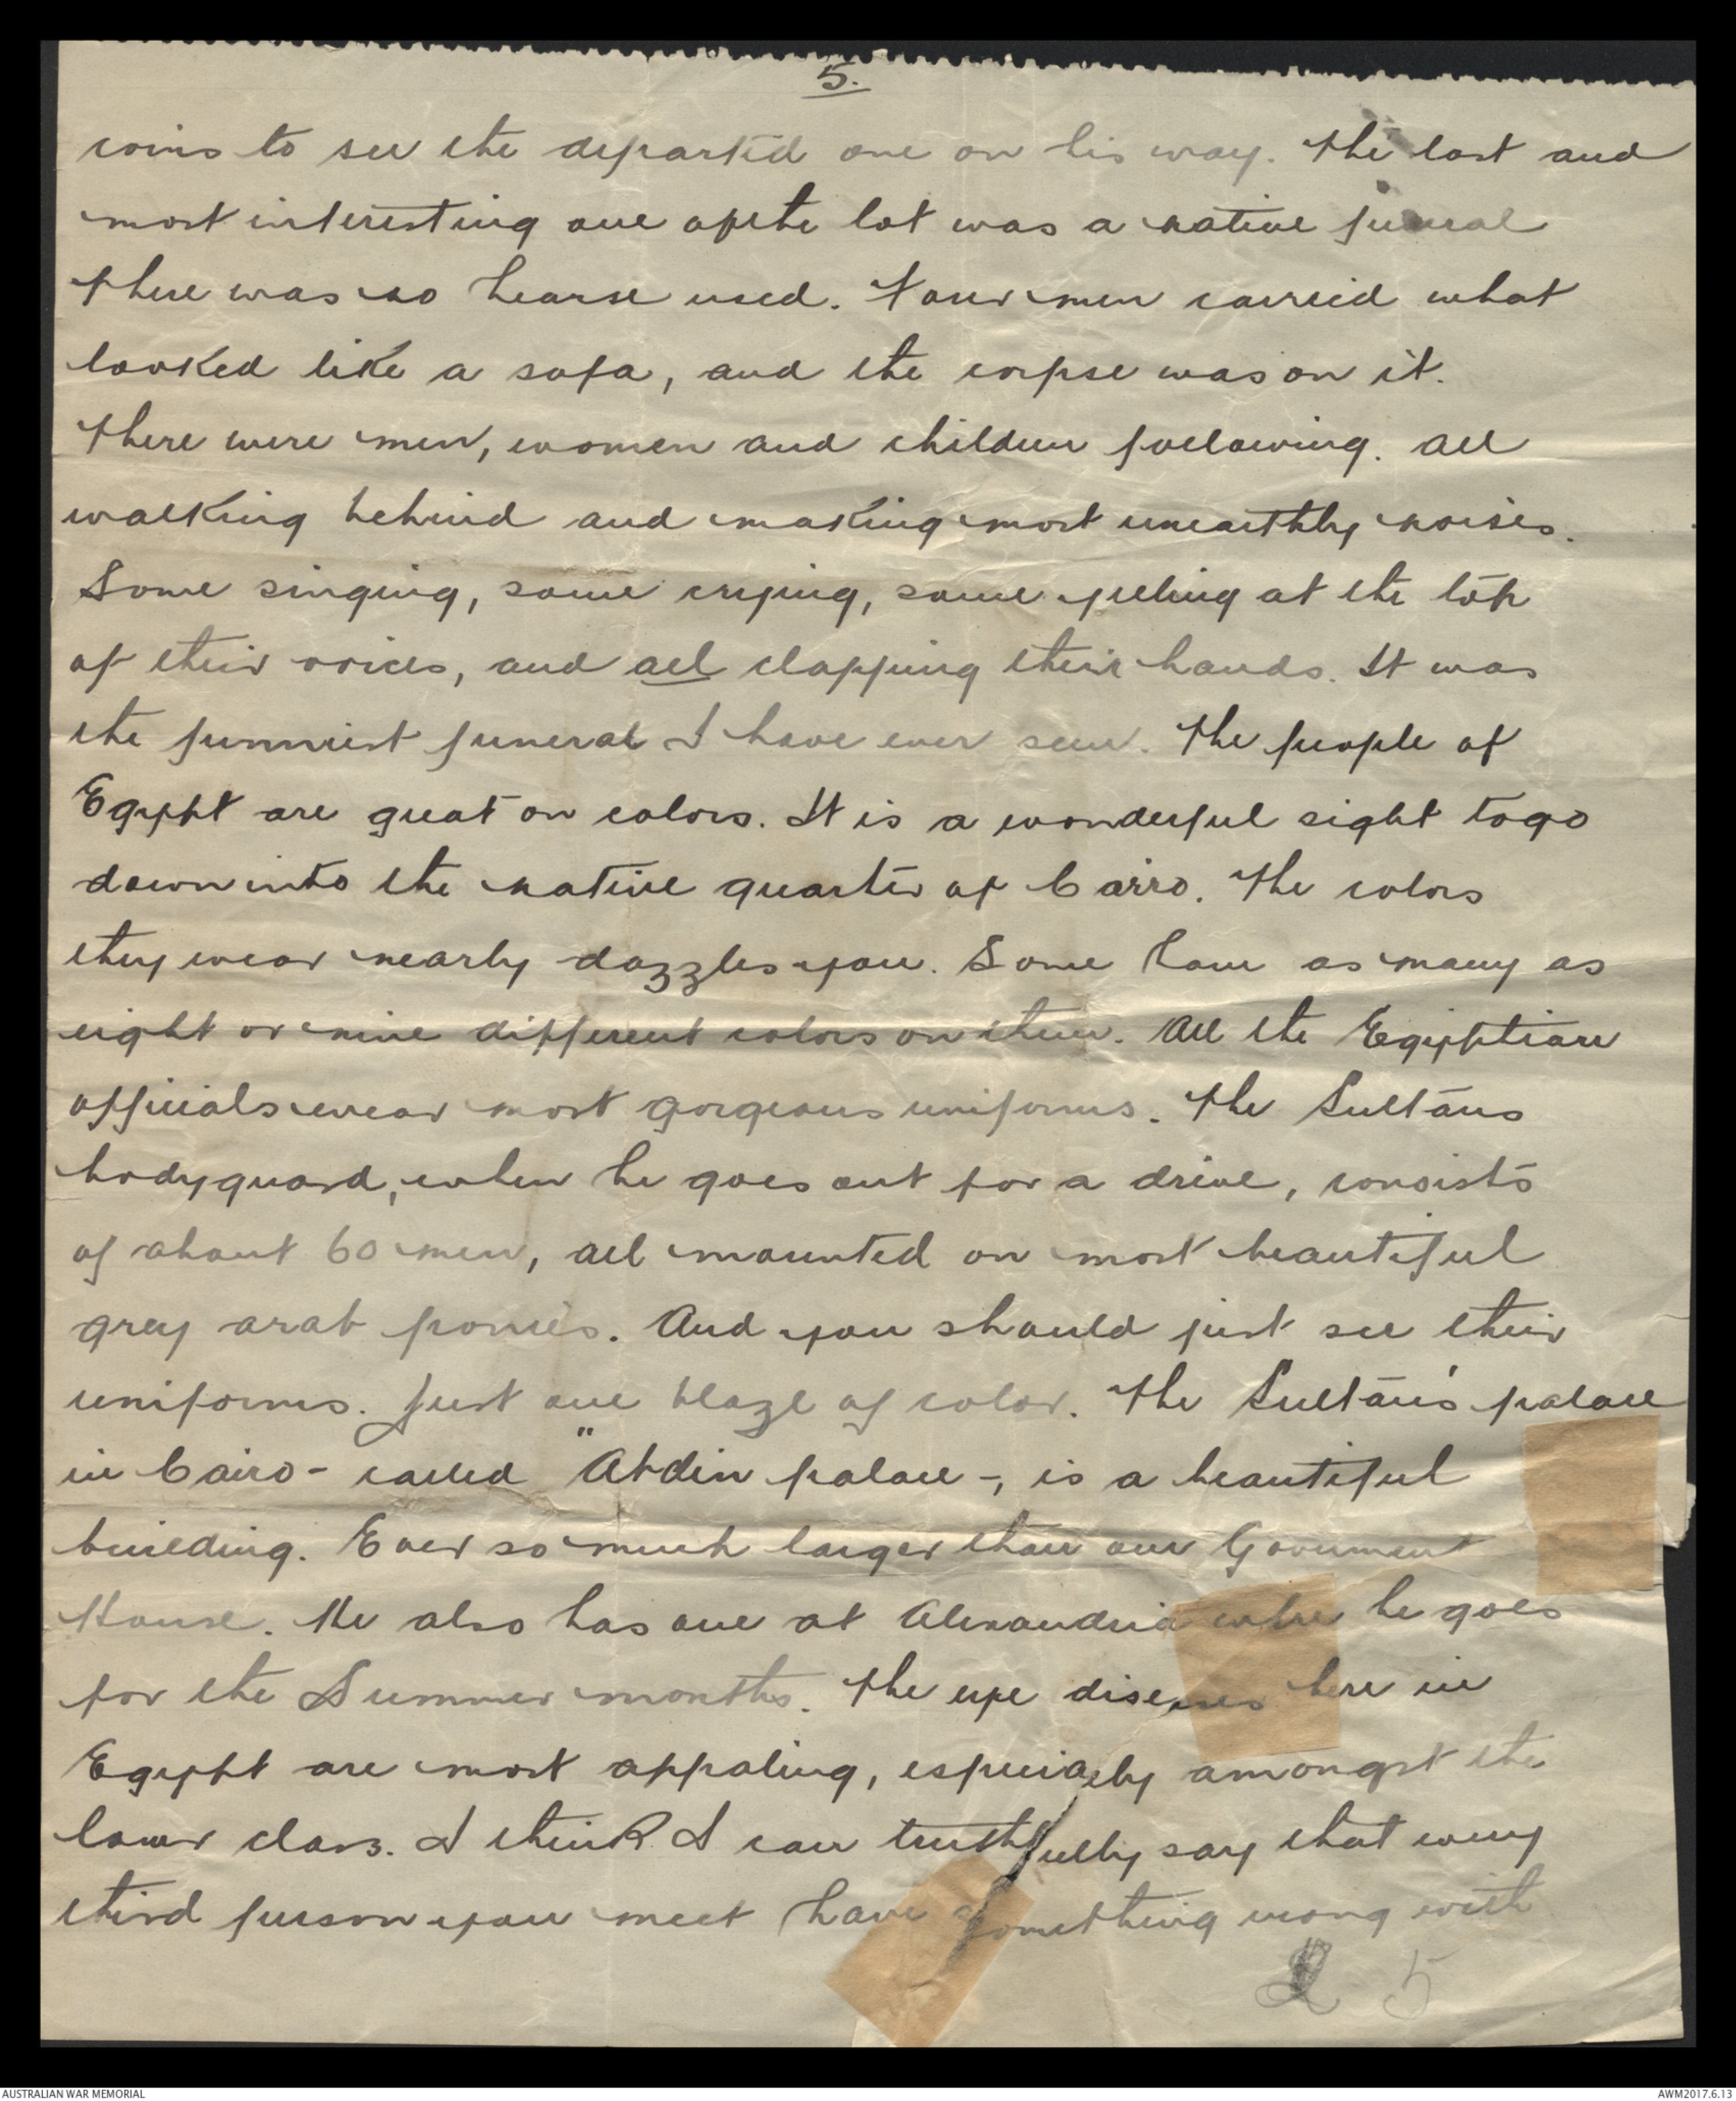 5.
coins to see the departed one on his way. The last and
most interesting one of the lot was a native funeral
There was no hearse used. Four men carried what
looked like a sofa, and the corpse was on it.
There were men, women and children following. All
walking behind and making most unearthly noises.
Some singing, some crying, some yelling at the top
of their voices, and all clapping their hands. It was
the funniest funeral I have ever seen. The people of
Egypt are great on colors. It is a wonderful sight to go
down into the native quarter of Cairo. The colors
they wear nearly dazzles you. Some have as many as
eight or nine different colors on them. All the Egyptian
officials wear most gorgeous uniforms. The Sultans
bodyguard, when he goes out for a drive, consists
of about 60 men, all mounted on most beautiful
grey arab ponies. And you should just see their
uniforms. Just one blaze of color. The Sultan's palace
in Cairo - called "Abdin palace -, is a beautiful
building. Ever so much larger than our Government
House. He also has one at Alexandria where he goes
for the Summer months. The eye diseases here in
Egypt are most appaling, especially amongst the
lower class. I think I can truthfully say that every
third person you meet have something wrong with
5
AUSTRALIAN WAR MEMORIAL
AWM2017.6.13